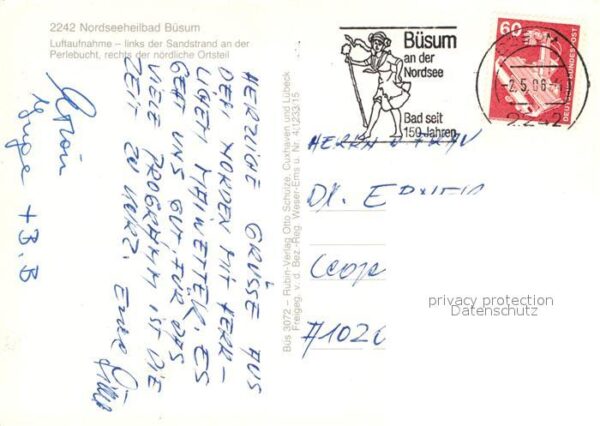 2242 Nordseeheilbad Büsum
Luftaufnahme – links der Sandstrand an der
Perlebucht, rechts der nördliche Ortsteil
HERZLICHE GRÜSSE AUS
DEM NORDEN MIT HERR-
LICHEM MAIWETTER. ES
GEHT UNS GUT. FÜR DAS
VIELE PROGRAMM IST DIE
ZEIT ZU KURZ. EURE
Büs 3072 – Rubin-Verlag Otto Schulze, Cuxhaven und Lübeck
Freigeg. v. d. Bez.-Reg. Weser-Ems u. Nr. 4/0233/15
Büsum
an der
Nordsee
Bad seit
150 Jahren
60
DEUTSCHE BUNDESPOST
2242
HERRN U FRAU
DR.
A1020
privacy protection
Datenschutz